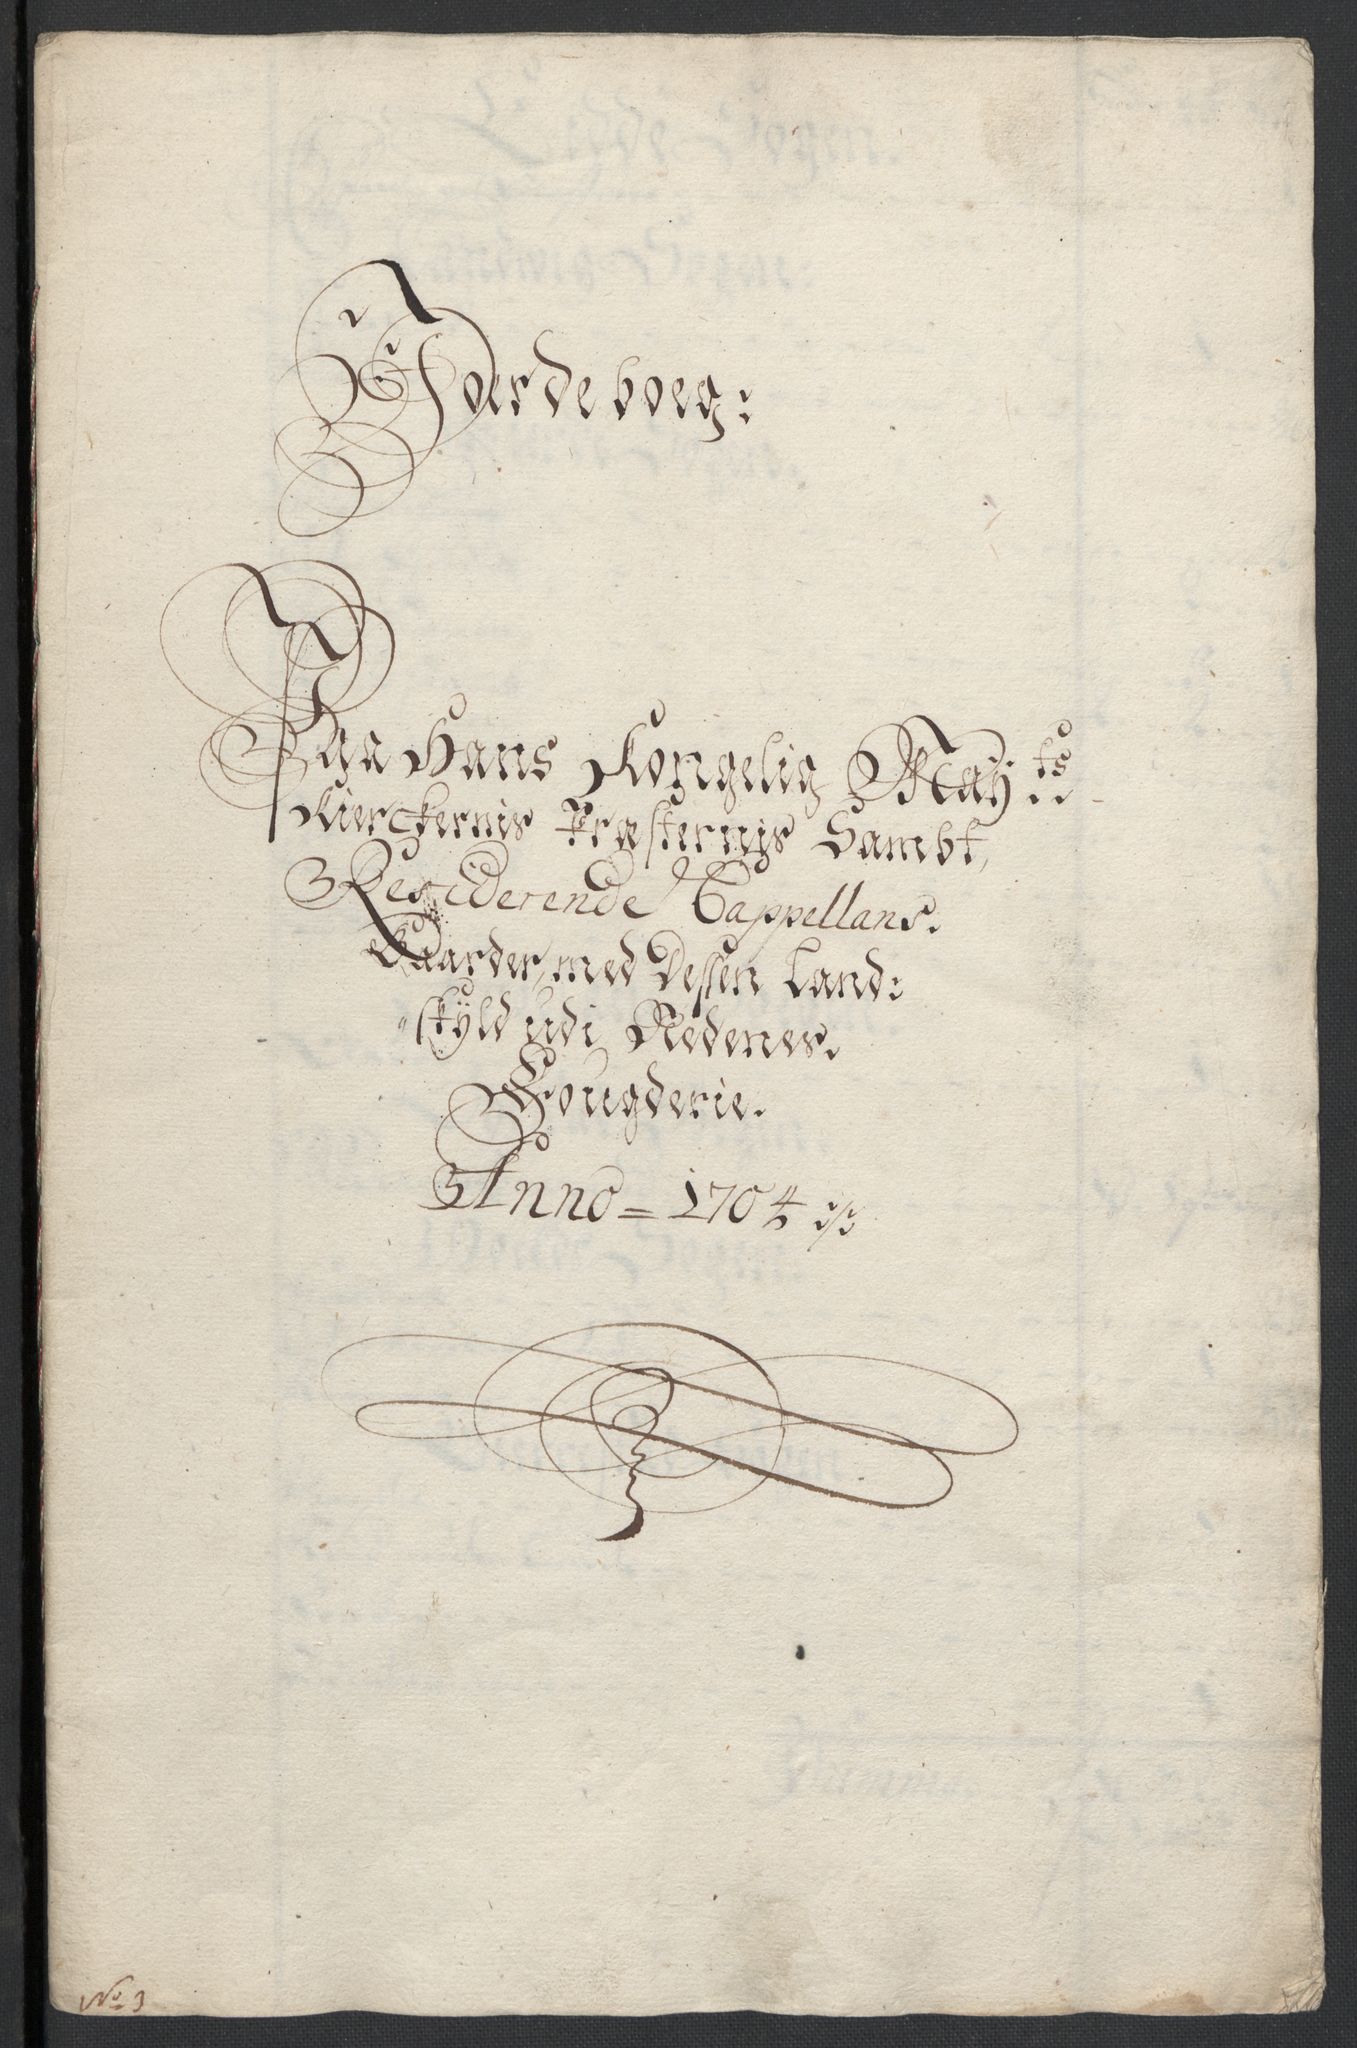 Joerdeboeg:
Paa Hans Kongelig May:ts
Kierckernis Præsternis Sambt,
Resciderende Cappellans.
Gaarder, med Dessen Land:
skÿld udi Nedenes.
Fougderie.
Anno = 1704 ./.
No 3